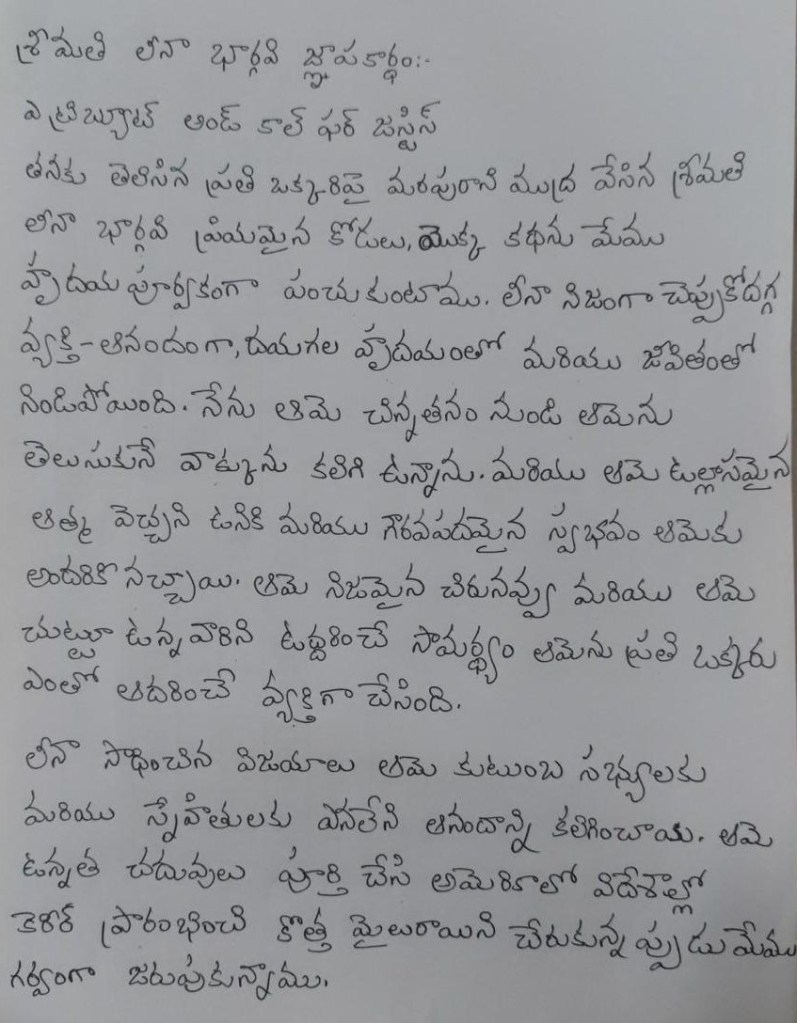 శ్రీమతి లీనా భార్గవి జ్ఞాపకార్థం:-
ఎ ట్రిబ్యూట్ అండ్ కాల్ ఫర్ జస్టిస్
తనకు తెలిసిన ప్రతి ఒక్కరిపై మరపురాని ముద్ర వేసిన శ్రీమతి
లీనా భార్గవి ప్రియమైన కోడలు, యొక్క కథను మేము
హృదయ పూర్వకంగా పంచుకుంటాము. లీనా నిజంగా చెప్పుకోదగ్గ
వ్యక్తి - ఆనందంగా, దయగల హృదయంతో మరియు జీవితంతో
నిండిపోయింది. నేను ఆమె చిన్నతనం నుండి ఆమెను
తెలుసుకునే వాక్కును కలిగి ఉన్నాను. మరియు ఆమె ఉల్లాసమైన
ఆత్మ వెచ్చని ఉనికి మరియు గౌరవపదమైన స్వభావం ఆమెకు
అందరికీ నచ్చాయి. ఆమె నిజమైన చిరునవ్వు మరియు ఆమె
చుట్టూ ఉన్న వారిని ఉద్దరించే సామర్థ్యం ఆమెను ప్రతి ఒక్కరు
ఎంతో ఆదరించే వ్యక్తిగా చేసింది.
లీనా సాధించిన విజయాలు ఆమె కుటుంబ సభ్యులకు
మరియు స్నేహితులకు ఎనలేని ఆనందాన్ని కలిగించాయి. ఆమె
ఉన్నత చదువులు పూర్తి చేసి అమెరికాలో విదేశాల్లో
కెరీర్ ప్రారంభించి కొత్త మైలురాయిని చేరుకున్నప్పుడు మేము
గర్వంగా జరుపుకున్నాము.